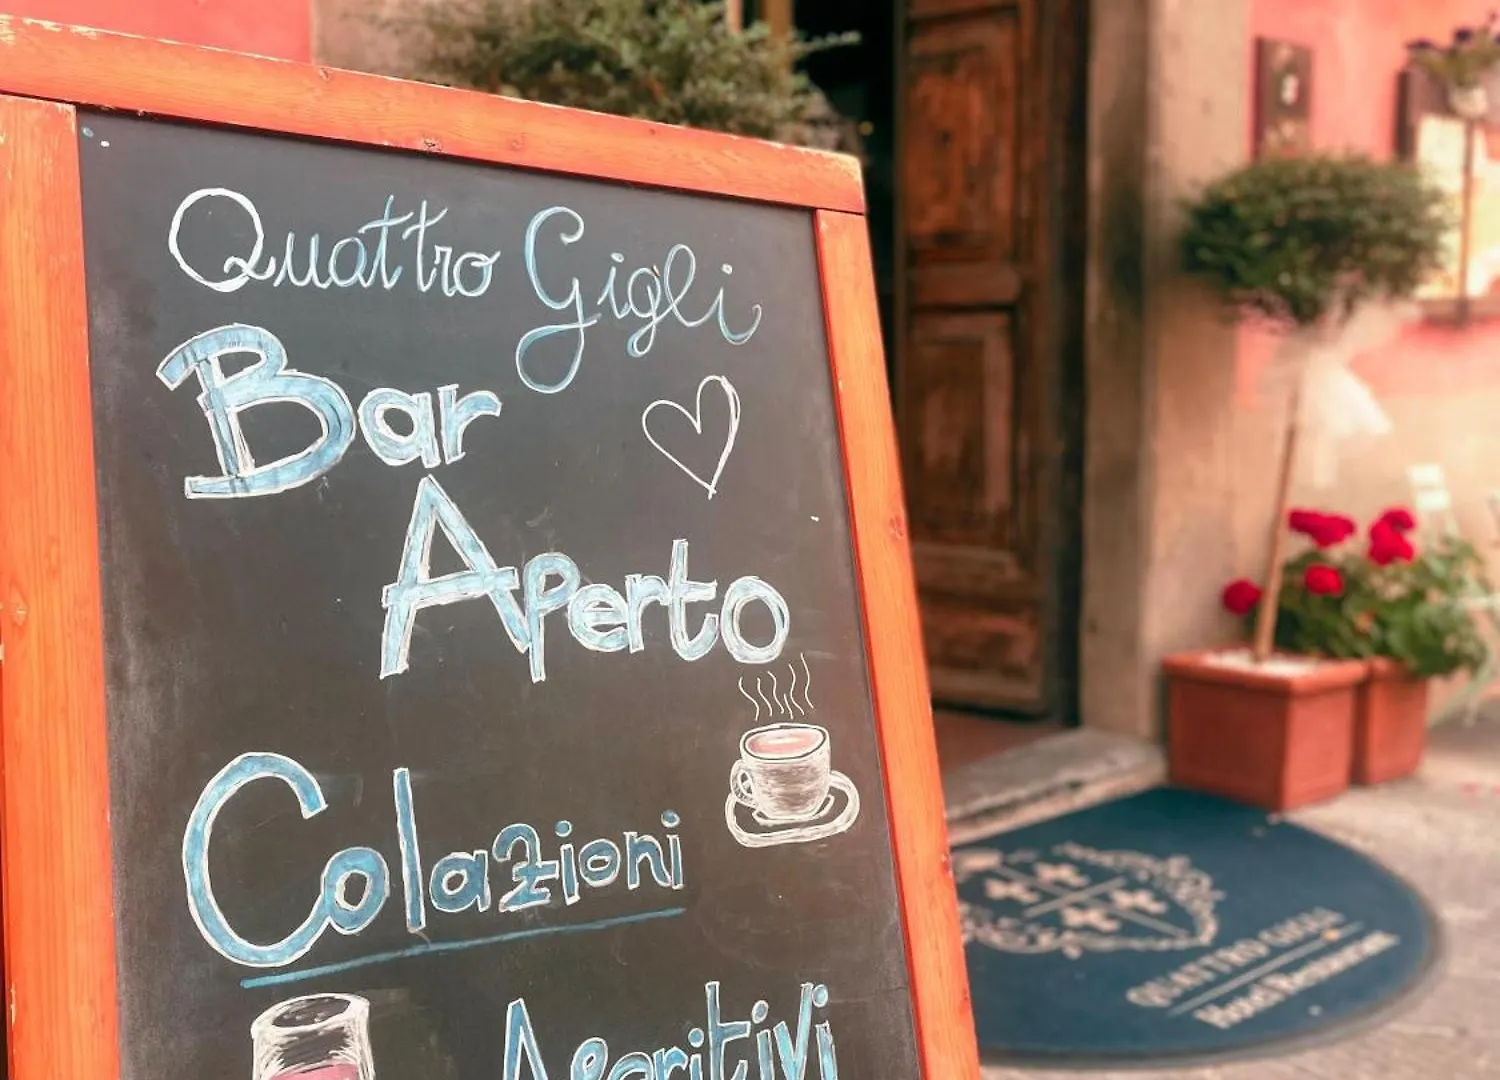 Quattro Gigli
Bar
Aperto
Colazioni
Aperitivi
QUATTRO GIGLI
Hotel Restaurant